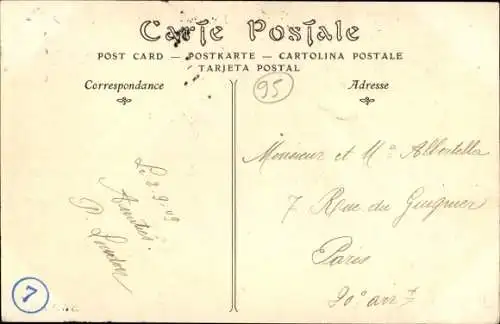 Carte Postale
POST CARD — POSTKARTE — CARTOLINA POSTALE
TARJETA POSTAL
Correspondance
95
Adresse
Le 2.9.09
Amitiés
Monsieur et Mᵉ
7 Rue du Guignier
Paris
20ᵉ arr ᵗ
7